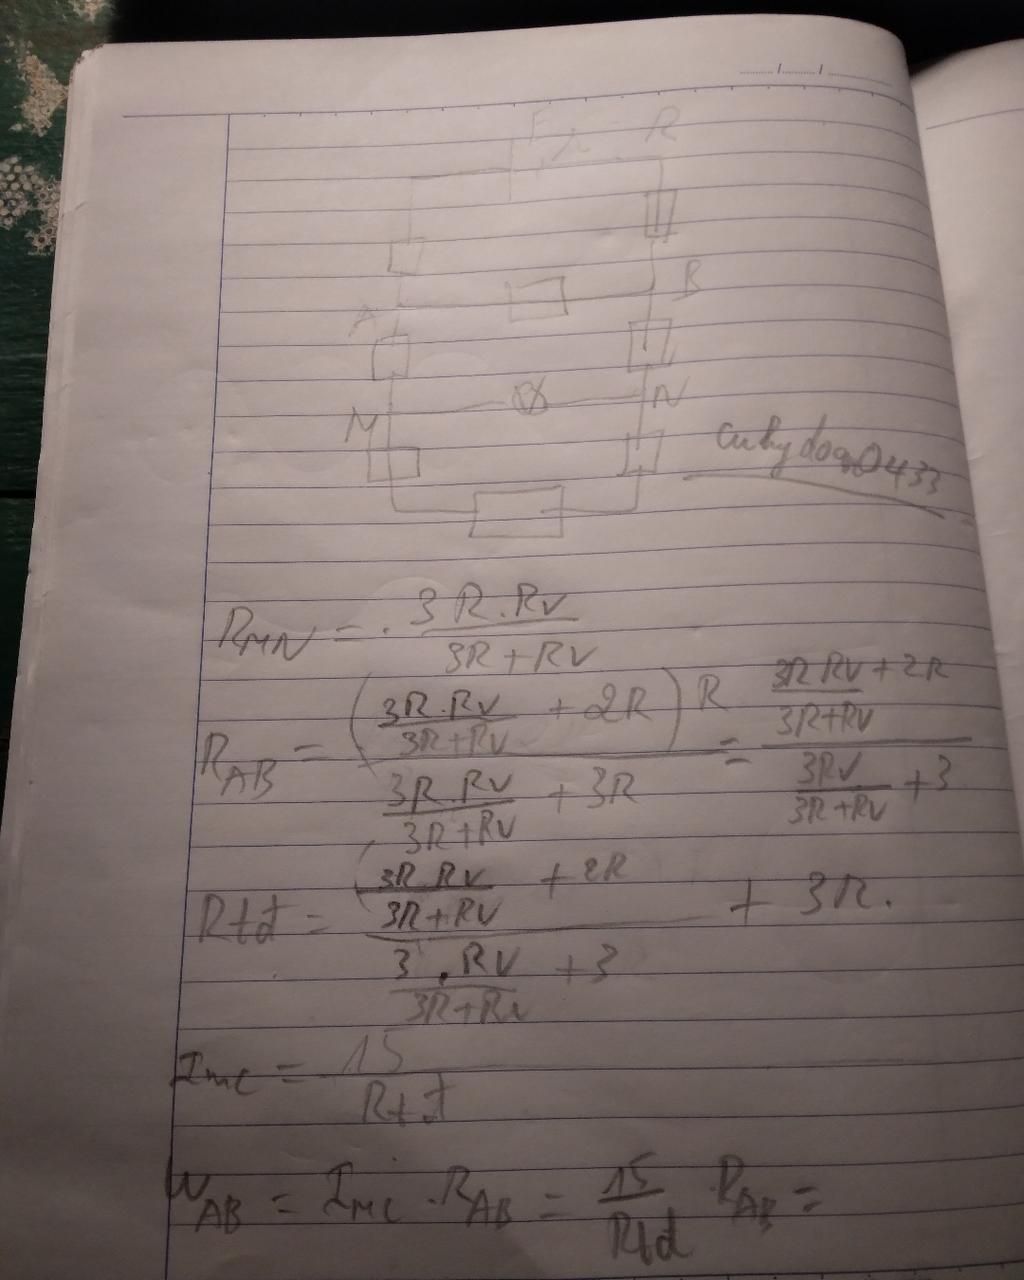 E R
A B
M N
R_MN = 3R.Rv / (3R+Rv)
R_AB = (3R.Rv / (3R+Rv) + 2R) R / (3R.Rv / (3R+Rv) + 3R) = (3R Rv / (3R+Rv) + 2R) / (3Rv / (3R+Rv) + 3)
Rtđ = (3R.Rv / (3R+Rv) + 2R) / (3.Rv / (3R+Rv) + 3) + 3R.
Imc = 15 / Rtđ
U_AB = Imc . R_AB = 15 / Rtđ . R_AB =